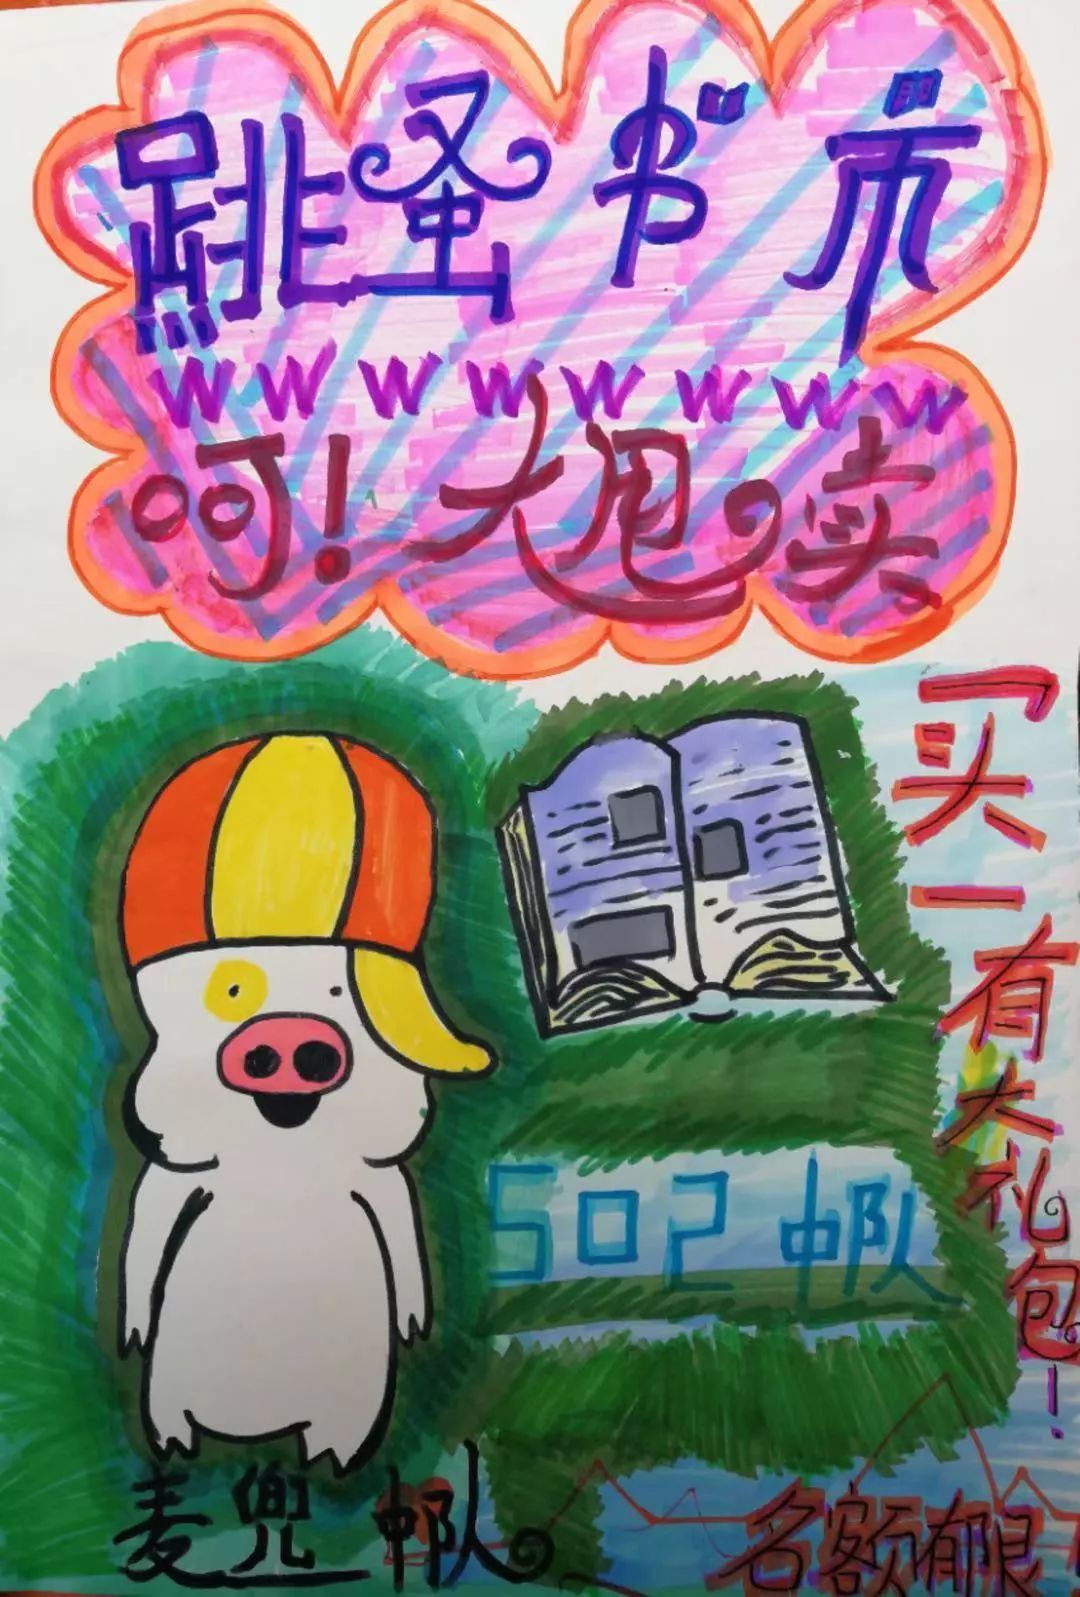 跳蚤书市
W W W W W W W W
呵！大甩卖
买一有大礼包！
502中队
麦兜中队。
名额有限！